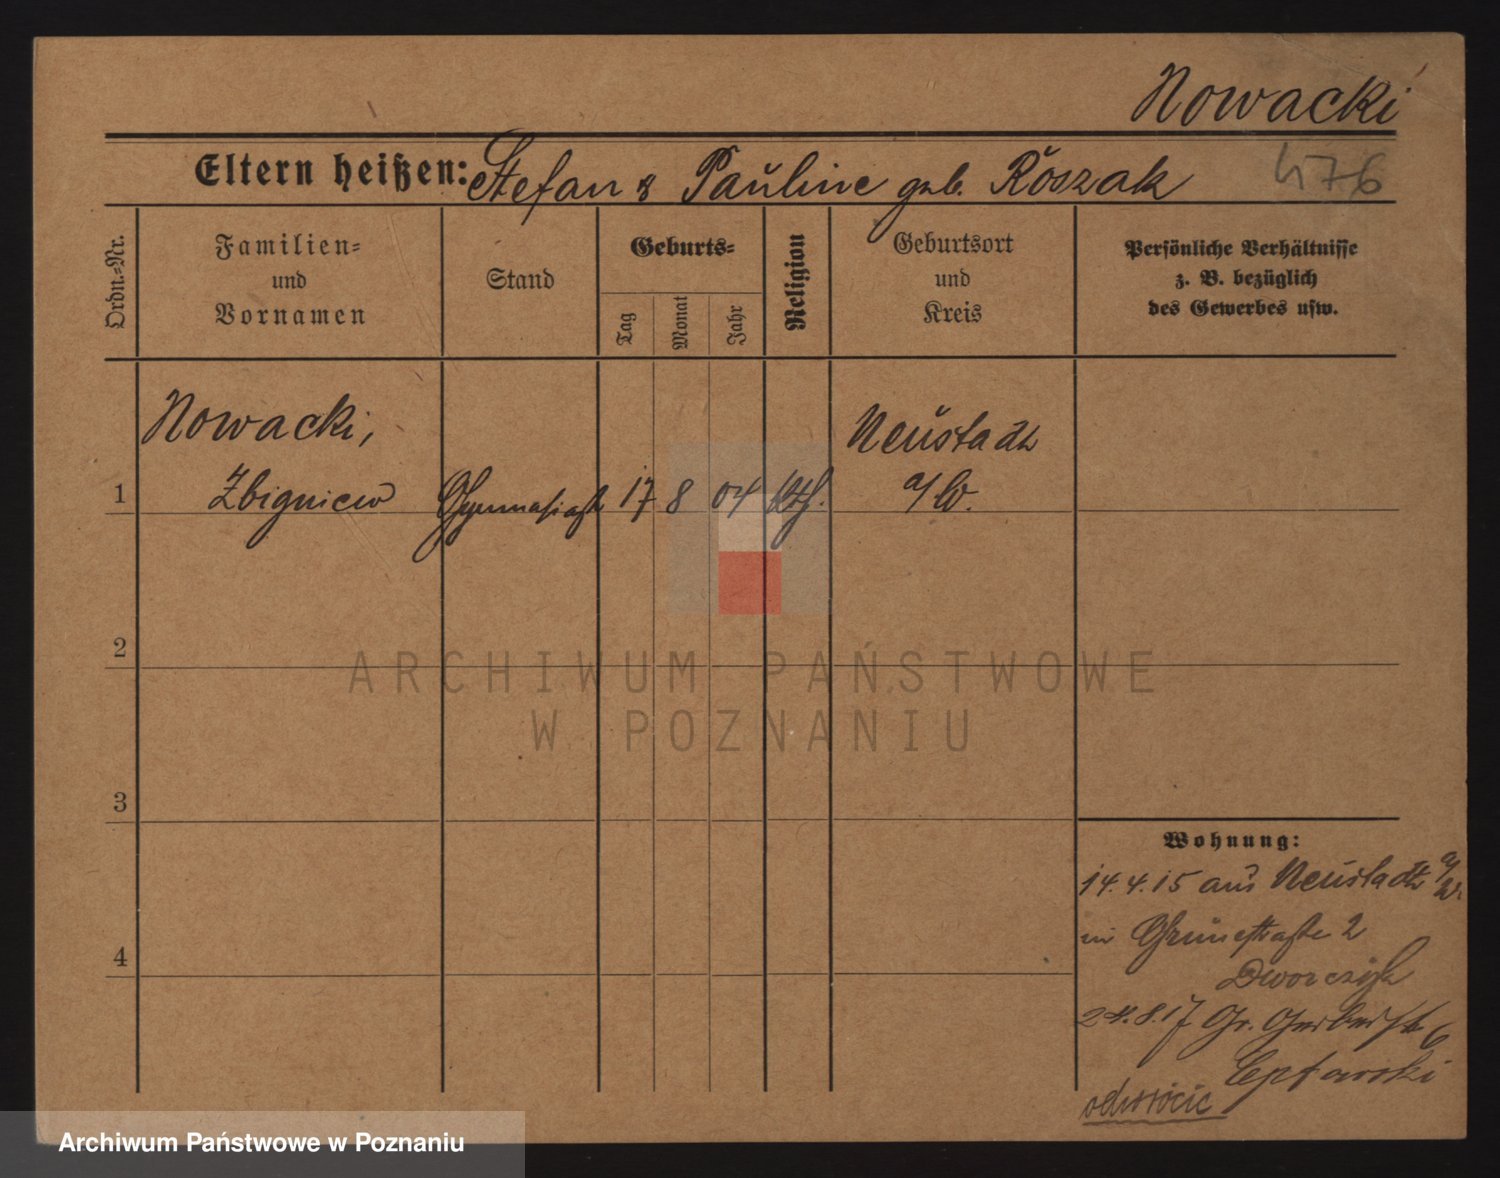 Nowacki
Eltern heißen: Stefan & Pauline geb. Roszak
476
Ordn.-Nr.
Familien-
und
Vornamen
Stand
Geburts-
Tag
Monat
Jahr
Religion
Geburtsort
und
Kreis
Persönliche Verhältnisse
z. B. bezüglich
des Gewerbes usw.
Nowacki,
1 Zbigniew Gymnasiast 17 8 04 kth. Neustadt
a/W.
2
3
4
Wohnung:
14.4.15 aus Neustadt a/W.
in Grünestraße 2
Dworczyk
24.8.17 Gr. Gerberstr 6
odwrócić
ARCHIWUM PAŃSTWOWE
W POZNANIU
Archiwum Państwowe w Poznaniu